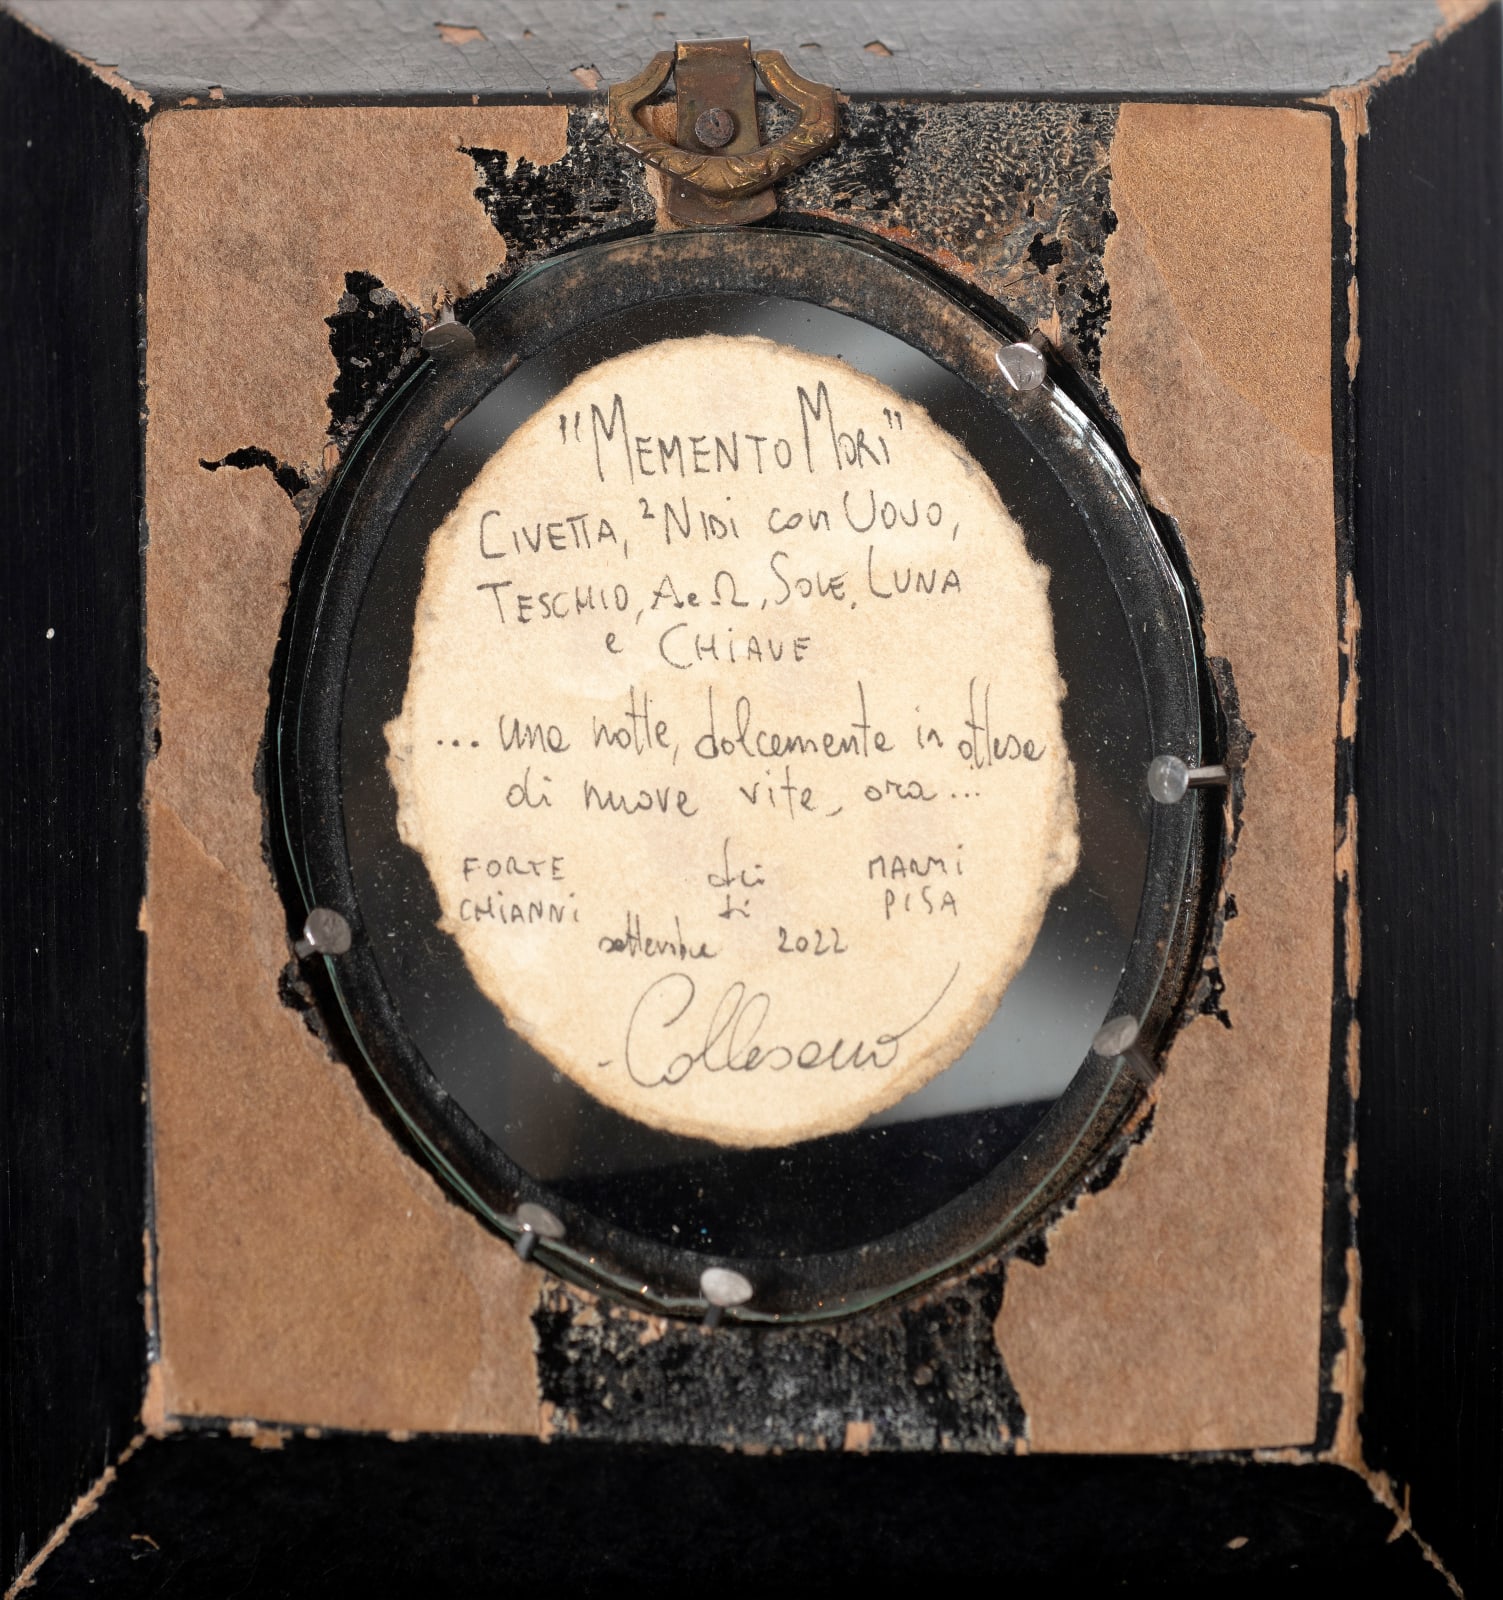 "MEMENTO MORI"
CIVETTA, 2 NIDI con UOVO,
TESCHIO, A e Ω, SOLE, LUNA
e CHIAVE
... una notte, dolcemente in attesa
di nuove vite, ora...
FORTE dei MARMI
CHIANNI di PISA
settembre 2022
- Collesano